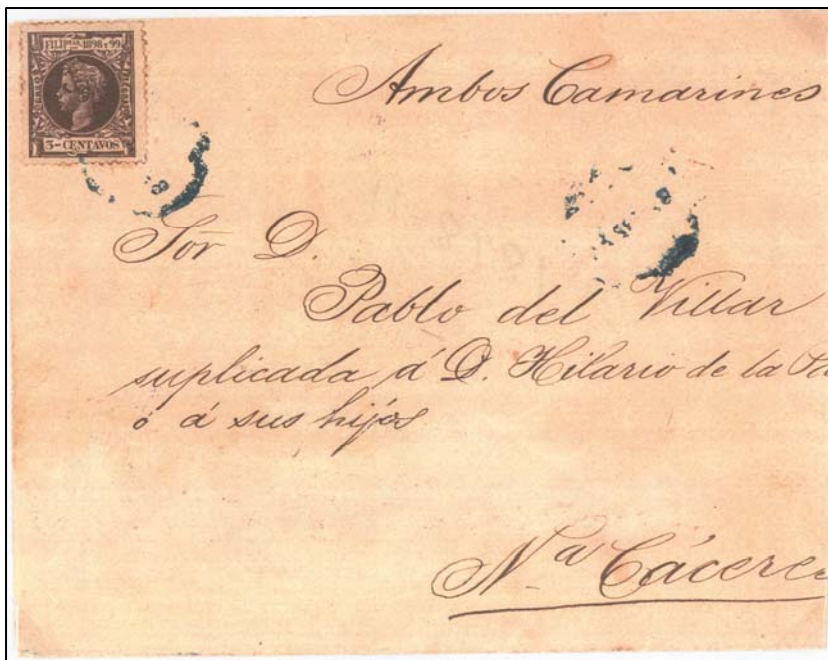 FILIPnas. 1898 y 99
CORREOS
3-CENTAVOS
Ambos Camarines
Sor D.
Pablo del Villar
suplicada á D. Hilario de la
ó á sus hijos
Na Cáceres